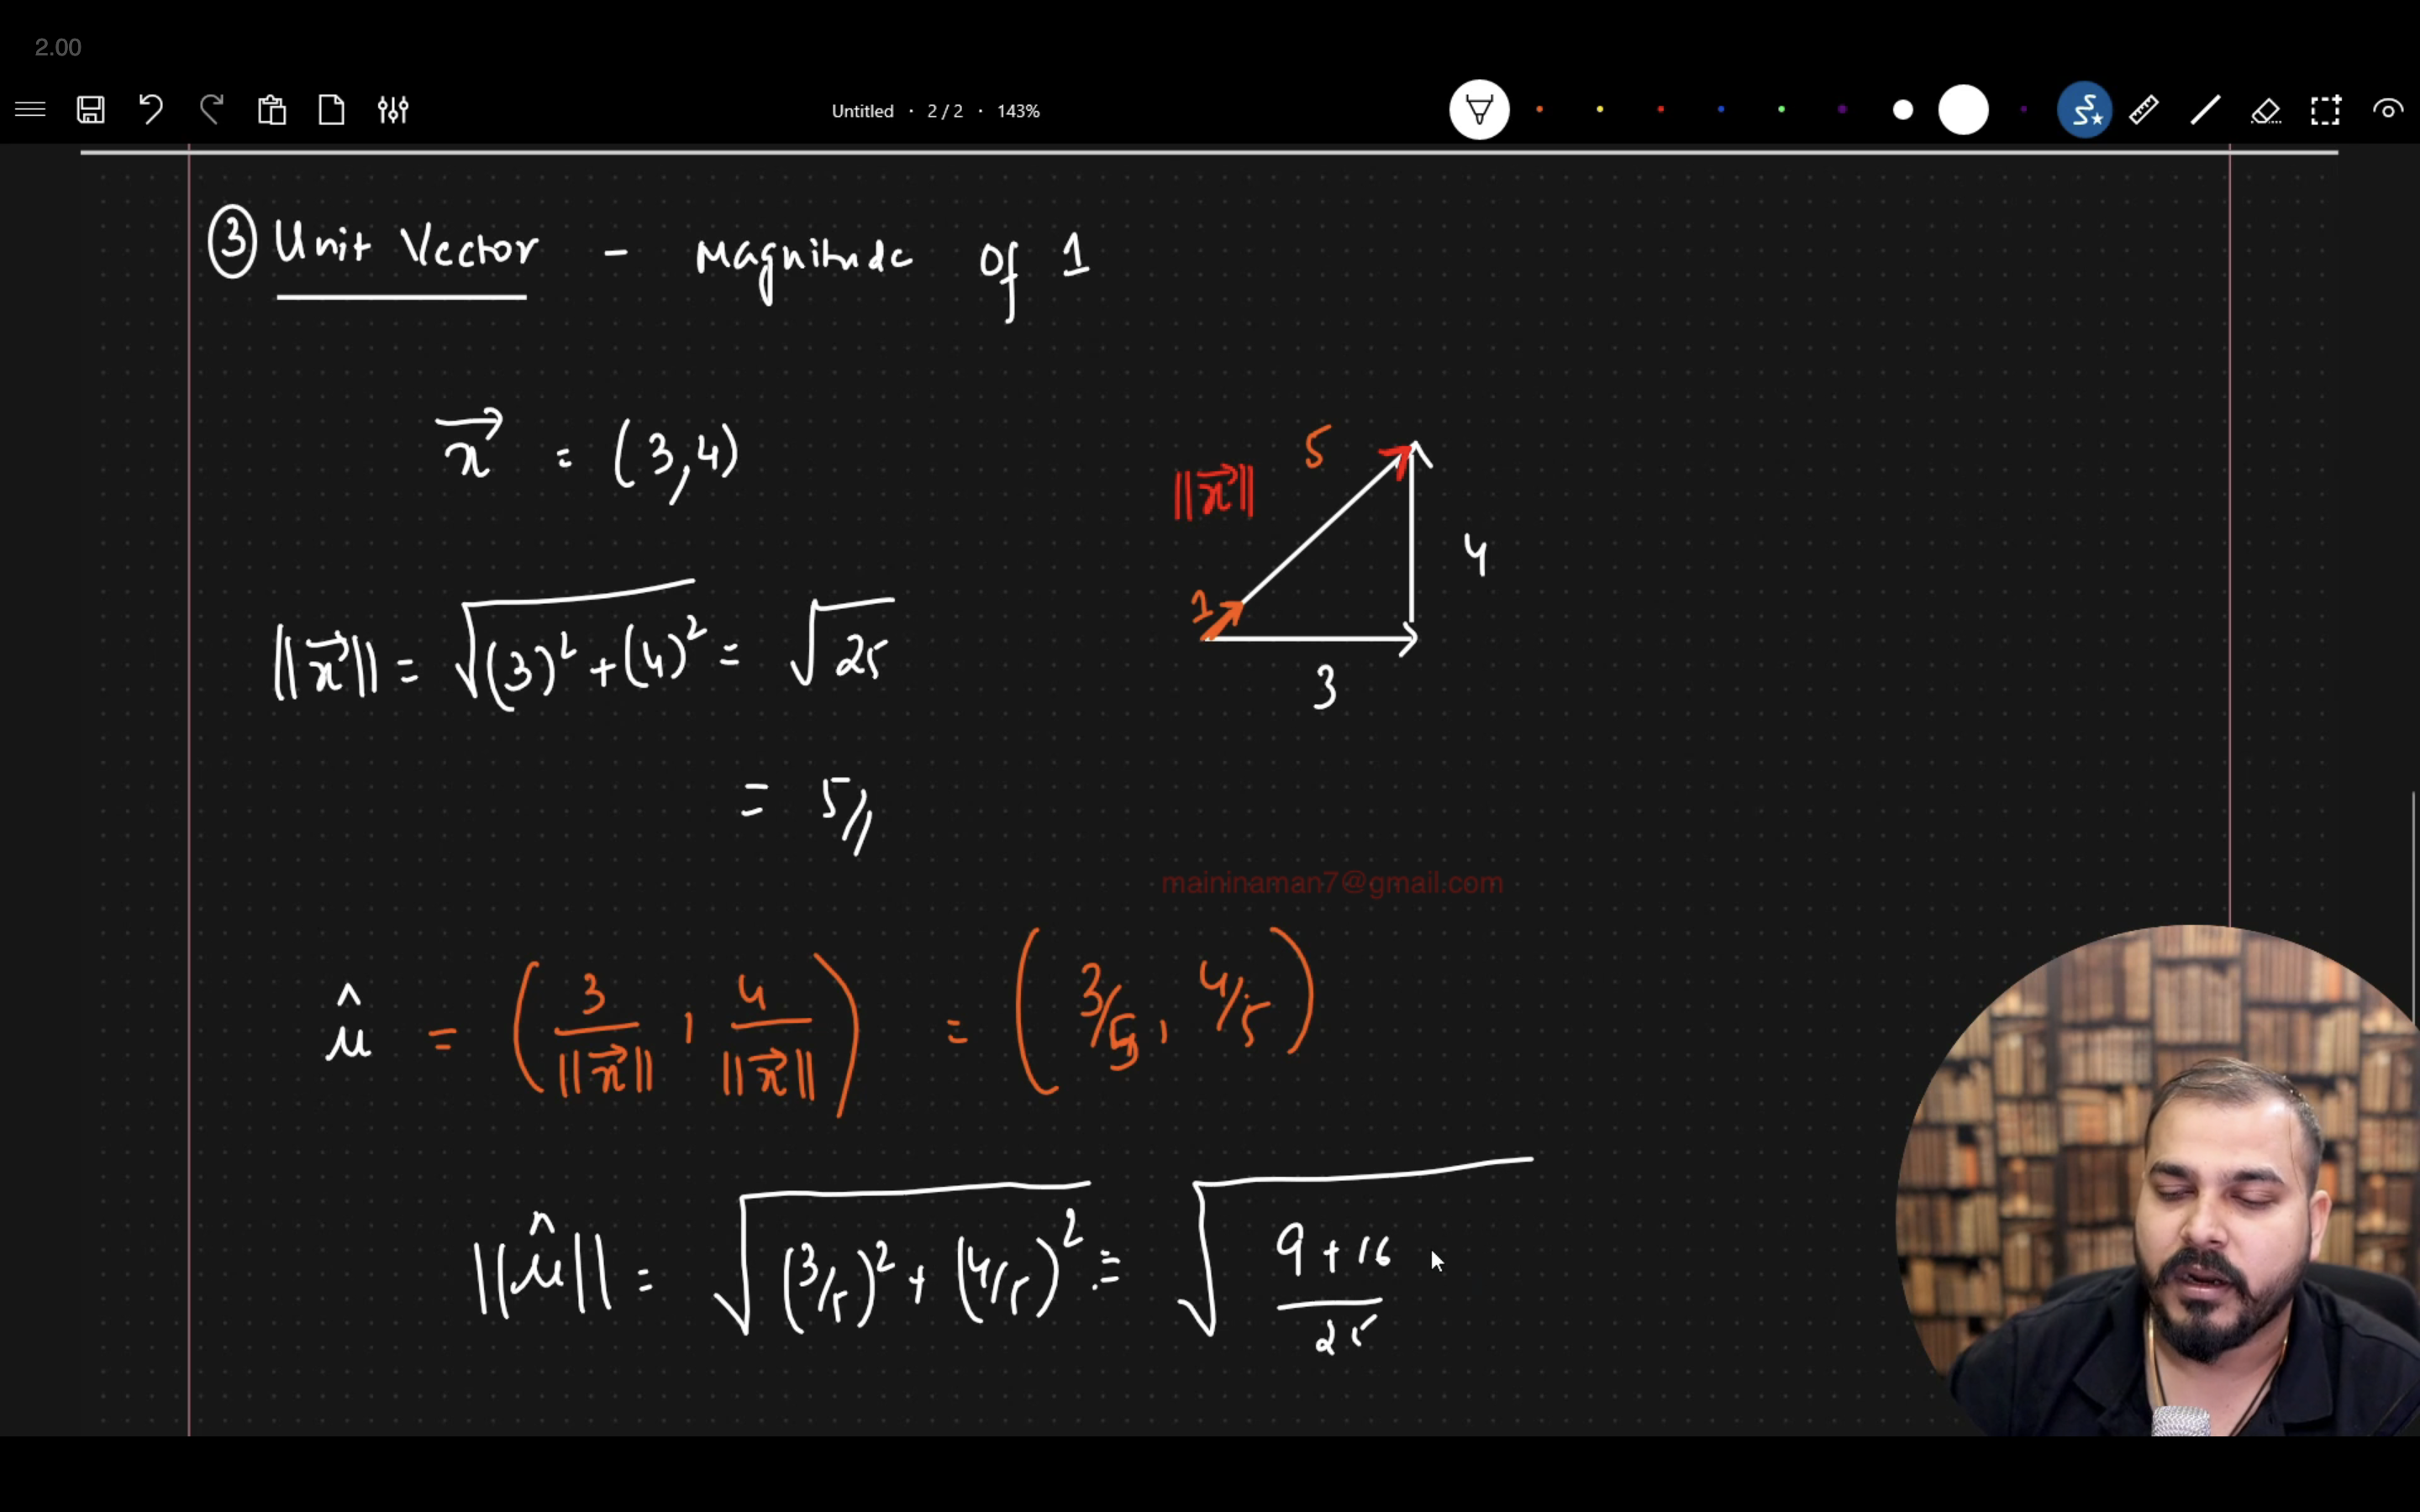 2.00
Untitled · 2 / 2 · 143%
③ Unit Vector - Magnitude of 1
x⃗ = (3,4)
5
||x⃗||
4
1
3
||x⃗|| = √((3)² + (4)²) = √25
= 5//
maininaman7@gmail.com
û = (3/||x⃗||, 4/||x⃗||) = (3/5, 4/5)
||û|| = √((3/5)² + (4/5)²) = √((9+16)/25)